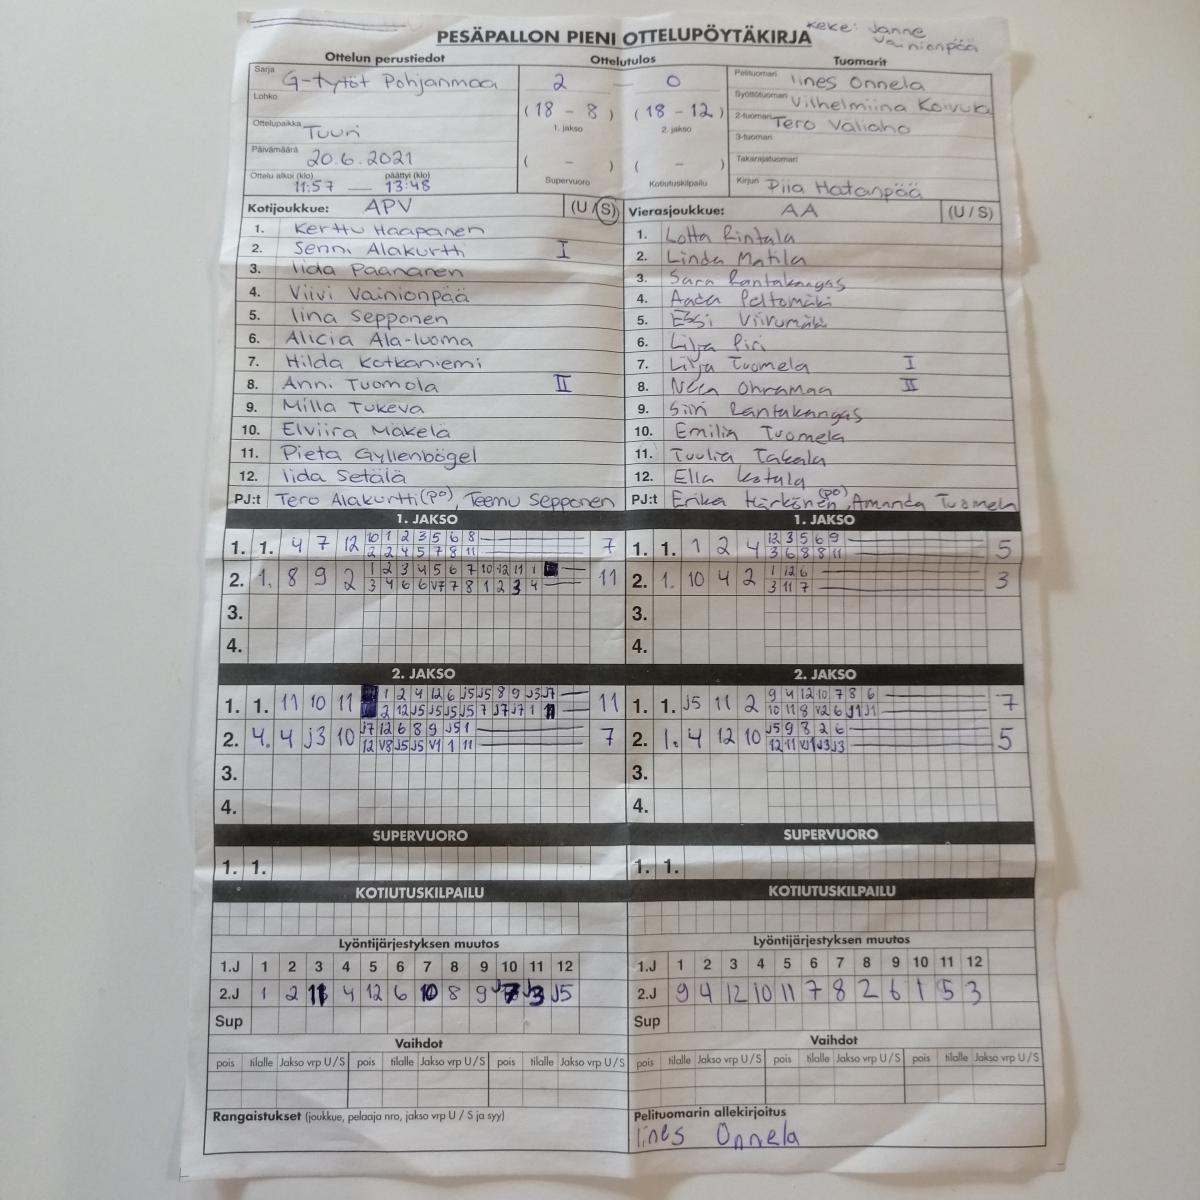 Keke: Janne Vainionpää
PESÄPALLON PIENI OTTELUPÖYTÄKIRJA
Ottelun perustiedot Ottelutulos Tuomarit
Sarja G-tytöt Pohjanmaa 2 — 0 Pelituomari Iines Onnela
Lohko (18 - 8) (18 - 12) Syöttötuomari Vilhelmiina Koivula
1. jakso 2. jakso
Ottelupaikka Tuuri 2-tuomari Tero Väliaho
3-tuomari
Päivämäärä 20.6.2021 ( - ) ( - ) Takarajatuomari
Ottelu alkoi (klo) 11:57 — päättyi (klo) 13:48 Supervuoro Kotiutuskilpailu Kirjuri Piia Hatanpää
Kotijoukkue: APV (U / S) Vierasjoukkue: AA (U / S)
1. Kerttu Haapanen 1. Lotta Rintala
2. Senni Alakurtti I 2. Linda Matila
3. Iida Paananen 3. Sara Rantakangas
4. Viivi Vainionpää 4. Aada Peltomäki
5. Iina Sepponen 5. Essi Viirumäki
6. Alicia Ala-luoma 6. Lilja Piri
7. Hilda Kotkaniemi 7. Lilja Tuomela I
8. Anni Tuomola II 8. Neea Ohramaa II
9. Milla Tukeva 9. Siiri Rantakangas
10. Elviira Mäkelä 10. Emilia Tuomela
11. Pieta Gyllenbögel 11. Tuulia Takala
12. Iida Setälä 12. Ella
PJ:t Tero Alakurtti (po), Teemu Sepponen PJ:t Erika Härkönen (po), Amanda Tuomela
1. JAKSO 1. JAKSO
1. 1. 4 7 12 10 1 2 3 5 6 8 7 1. 1. 1 2 4 12 3 5 6 9 5
2 2 4 5 7 8 11 3 6 8 8 11
2. 1. 8 9 2 1 2 3 4 5 6 7 10 12 11 1 11 2. 1. 10 4 2 1 12 6 3
3 4 6 6 V7 7 8 1 2 3 4 3 11 7
3. 3.
4. 4.
2. JAKSO 2. JAKSO
1. 1. 11 10 11 1 2 4 12 6 J5 J5 8 9 J3 J7 11 1. 1. J5 11 2 9 4 12 10 7 8 6 7
2 12 J5 J5 J5 J5 7 J7 J7 1 11 10 11 8 V2 6 J1 J1
2. 4. 4 J3 10 J7 12 6 8 9 J5 1 7 2. 1. 4 12 10 J5 9 8 2 6 5
12 V8 J5 J5 V1 1 11 12 11 V1 J3 J3
3. 3.
4. 4.
SUPERVUORO SUPERVUORO
1. 1. 1. 1.
KOTIUTUSKILPAILU KOTIUTUSKILPAILU
Lyöntijärjestyksen muutos Lyöntijärjestyksen muutos
1.J 1 2 3 4 5 6 7 8 9 10 11 12 1.J 1 2 3 4 5 6 7 8 9 10 11 12
2.J 1 2 11 4 12 6 10 8 9 J7 J3 J5 2.J 9 4 12 10 11 7 8 2 6 1 5 3
Sup Sup
Vaihdot Vaihdot
pois tilalle Jakso vrp U / S pois tilalle Jakso vrp U / S pois tilalle Jakso vrp U / S pois tilalle Jakso vrp U / S pois tilalle Jakso vrp U / S pois tilalle Jakso vrp U / S
Rangaistukset (joukkue, pelaaja nro, jakso vrp U / S ja syy) Pelituomarin allekirjoitus
Iines Onnela